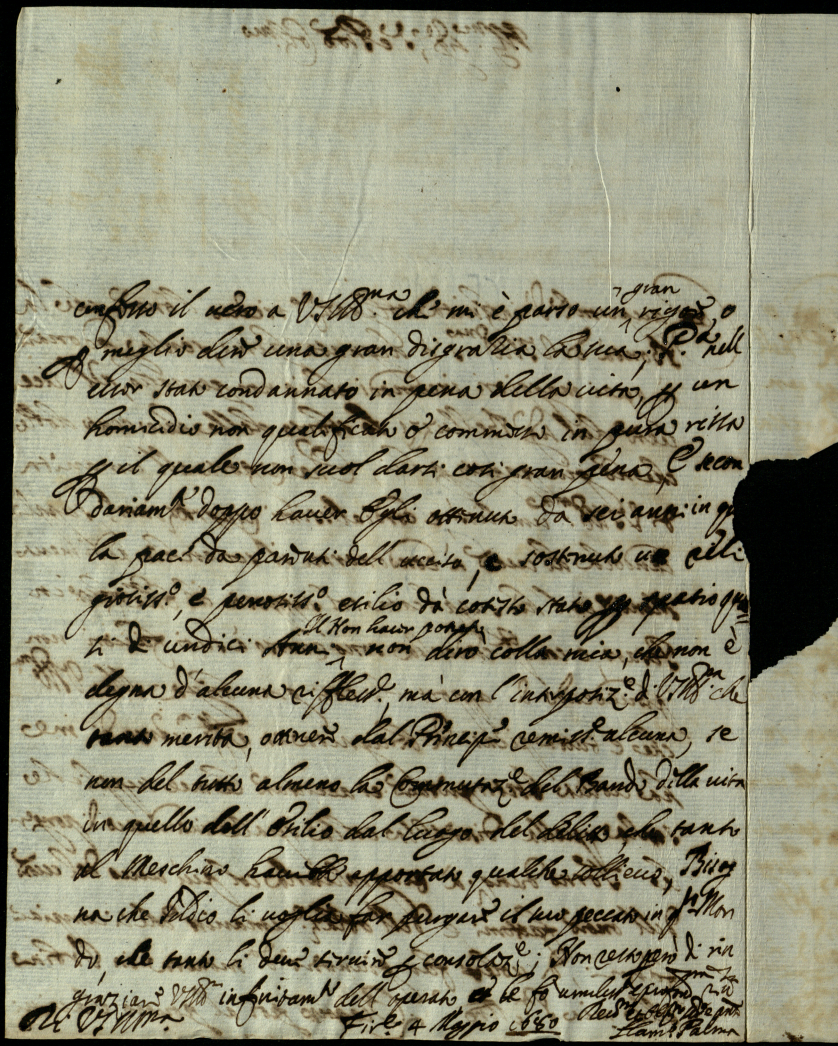 confesso il vero a VSIll.ma che mi è parso un gran rigore, o
p meglio dire una gran disgrazia la sua, P.a nell
esser stato condannato in pena della vita, p un
homicidio non qualificato e commesso in pura rissa
p il quale non suol darsi così gran pena, E secon
dariam.te doppo haver Egli ottenuta da sei anni in qu
la pace da parenti dell ucciso, e sostenuto un
e penosiss.o esilio da cotesto stato p spatio qua
si d undici Anni Il Non haver potuto non dirò colla mia, che non è
degna d'alcuna rifless.e, mà con l'interposiz.e d VSIll.ma che
tanto merita, ottenere dal Principe remiss.e alcuna, se
non del tutto almeno la Commutaz.e del Bando della vita
in quello dell' Esilio dal luogo del delitto, che tanto
al Meschino haverebbe apportato qualche sollievo, Bisog
na che Iddio li voglia far purgare il suo peccato in q.to Mon
do, che tanto li deve servire p consolaz.e; Non resto però di rin
graziare VSIll.ma infinitam.te dell operato et le fò
Di VSIll.ma
Fir.e 4 Maggio 1680
Palma